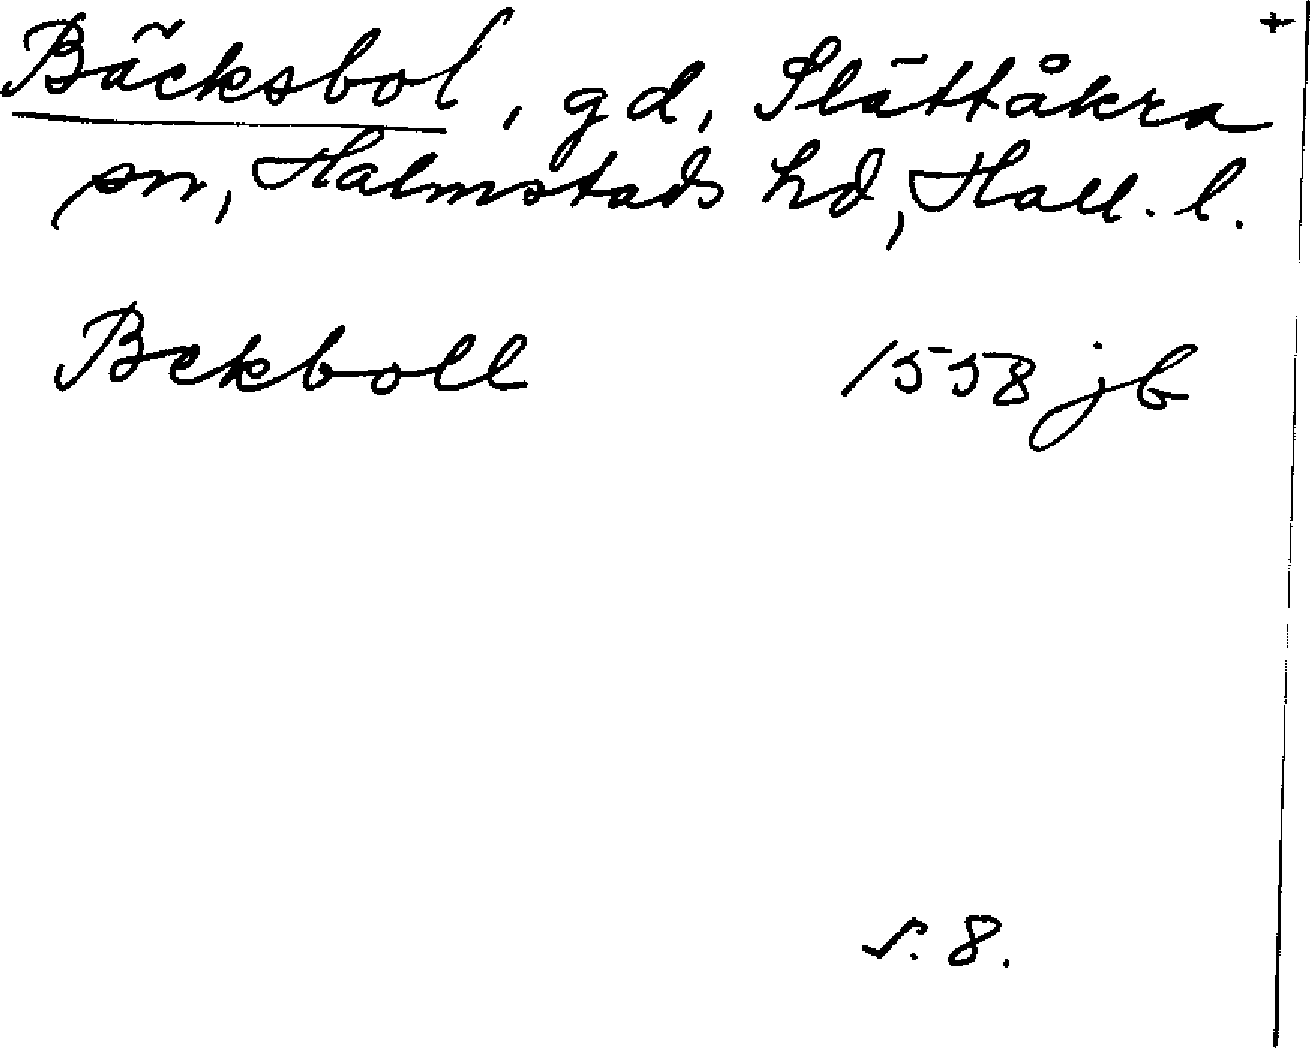 +
Bäcksbol, gd, Slättåkra
sn, Halmstads hd, Hall. l.
Bekboll 1558 jb
s. 8.